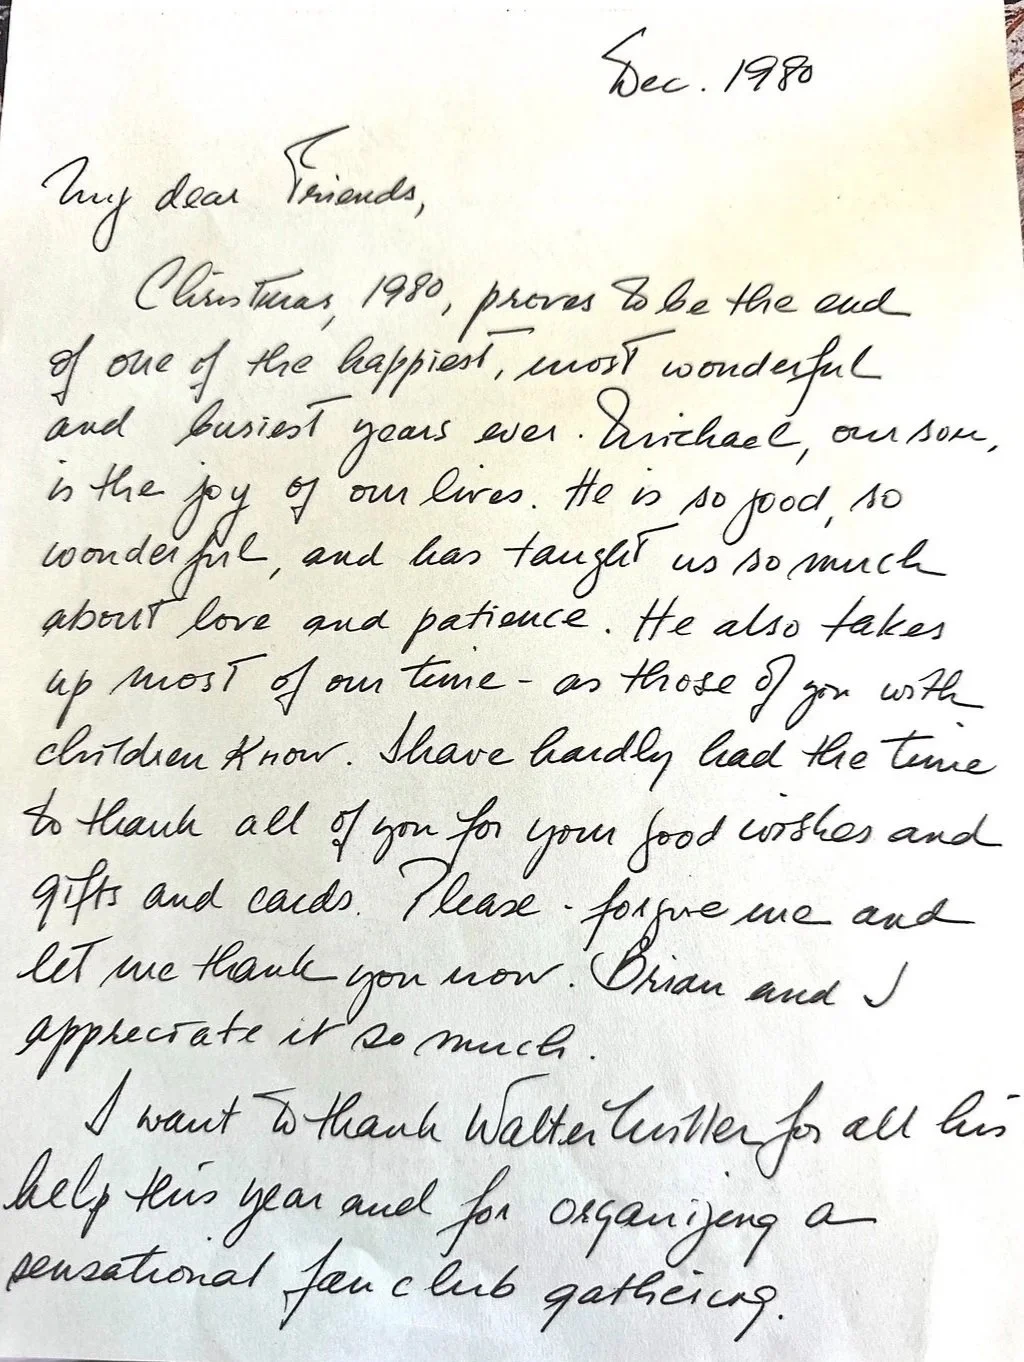 Dec. 1980
My dear Friends,
Christmas, 1980, proves to be the end
of one of the happiest, most wonderful
and busiest years ever. Michael, our son,
is the joy of our lives. He is so good, so
wonderful, and has taught us so much
about love and patience. He also takes
up most of our time - as those of you with
children know. I have hardly had the time
to thank all of you for your good wishes and
gifts and cards. Please - forgive me and
let me thank you now. Brian and I
appreciate it so much.
I want to thank Walter for all his
help this year and for organizing a
sensational fan club gathering.